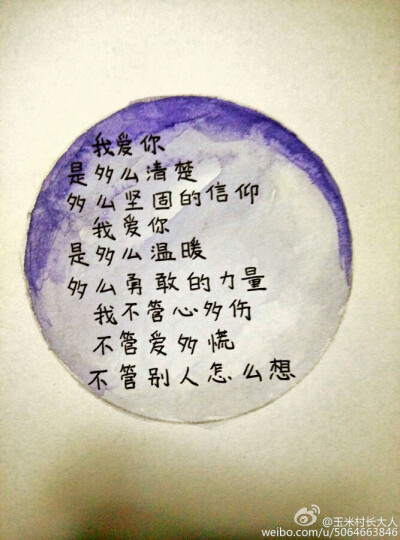 我爱你
是多么清楚
多么坚固的信仰
我爱你
是多么温暖
多么勇敢的力量
我不管心多伤
不管爱多慌
不管别人怎么想
@玉米村长大人
weibo.com/u/5064663846